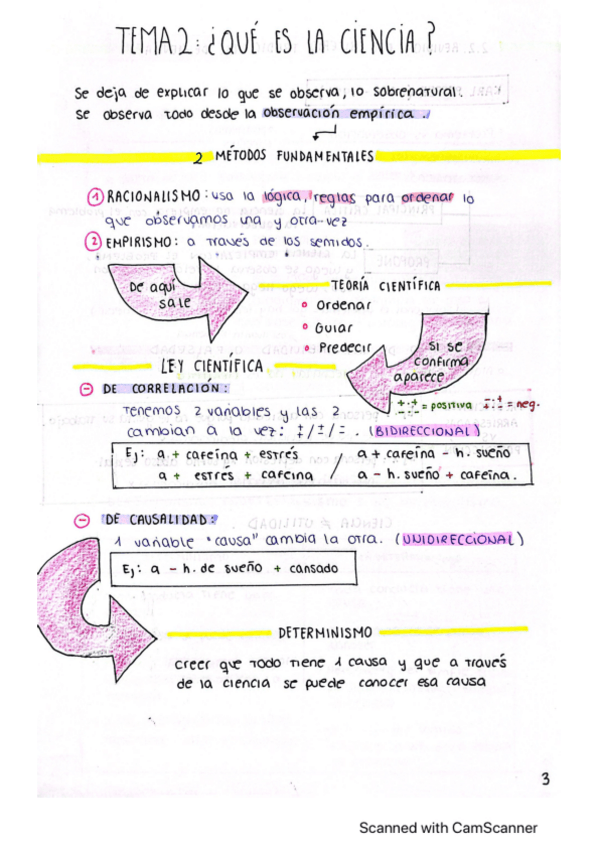 TEMA 2: ¿QUÉ ES LA CIENCIA?
Se deja de explicar lo que se observa, lo sobrenatural.
Se observa todo desde la observación empírica.
2 MÉTODOS FUNDAMENTALES
1 RACIONALISMO: usa la lógica, reglas para ordenar lo
que observamos una y otra vez
2 EMPIRISMO: a través de los sentidos.
De aquí
sale
TEORÍA CIENTÍFICA
Ordenar
Guiar
Predecir
Si se
confirma
aparece
LEY CIENTÍFICA
+:+ = positiva -:+ = neg.
- DE CORRELACIÓN:
Tenemos 2 variables y las 2
cambian a la vez: +/+/=. (BIDIRECCIONAL)
Ej: a + cafeína + estrés / a + cafeína - h. sueño
a + estrés + cafeína / a - h. sueño + cafeína.
- DE CAUSALIDAD:
1 variable "causa" cambia la otra. (UNIDIRECCIONAL)
Ej: a - h. de sueño + cansado
DETERMINISMO
Creer que todo tiene 1 causa y que a través
de la ciencia se puede conocer esa causa
3
Scanned with CamScanner